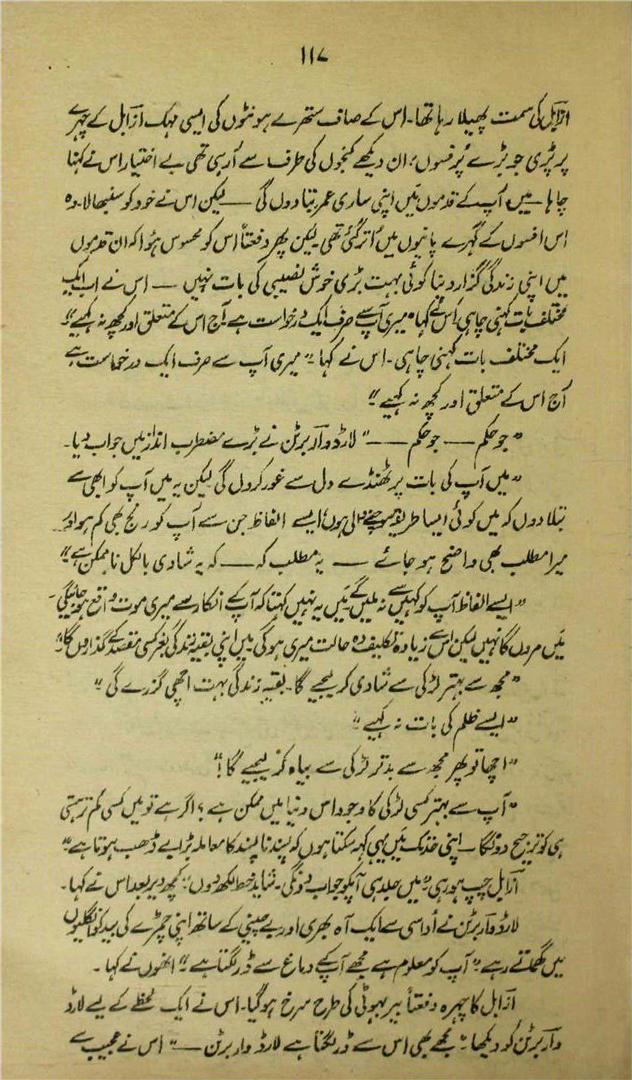 ۱۱۷
ازابل کی سمت پھیلا رہا تھا۔ اس کے صاف ستھرے ہونٹوں کی ایسی مہک ازابل کے چہرے
پر پڑی جو بڑے پُرفسوں، ان دیکھے کنجوں کی طرف سے آرہی تھی بے اختیار اس نے کہنا
چاہا — میں، آپ کے قدموں میں اپنی ساری عمر بتا دوں گی — لیکن اس نے خود کو سنبھالا۔ وہ
اس افسوں کے گہرے پانیوں میں اُتر گئی تھی لیکن پھر دفعتاً اس کو محسوس ہوا کہ ان قدموں
میں اپنی زندگی گزار دینا کوئی بہت بڑی خوش نصیبی کی بات نہیں — اس نے اب ایک
مختلف بات کہنی چاہی، اس نے کہا "میری آپ سے صرف ایک درخواست ہے آج اس کے متعلق اور کچھ نہ کہیے"
ایک مختلف بات کہنی چاہی۔ اس نے کہا۔ "میری آپ سے صرف ایک درخواست ہے
آج اس کے متعلق اور کچھ نہ کہیے"
"جو حکم — جو حکم —" لارڈ واربرٹن نے بڑے مضطرب انداز میں جواب دیا۔
"میں آپ کی بات پر ٹھنڈے دل سے غور کروں گی لیکن یہ میں آپ کو ابھی سے
بتلا دوں کہ میں کوئی ایسا طریقہ سوچنے والی ہوں، ایسے الفاظ جن سے آپ کو رنج بھی کم ہو اور
میرا مطلب بھی واضح ہو جائے — یہ مطلب کہ — کہ یہ شادی بالکل ناممکن ہے"
"ایسے الفاظ آپ کو کہیں سے نہ ملیں گے میں یہ نہیں کہتا کہ آپ کے انکار سے میری موت واقع ہو جائیگی۔
میں مروں گا نہیں لیکن اس سے زیادہ تکلیف دہ حالت میری ہوگی۔ میں اپنی بقیہ زندگی بغیر کسی مقصد کے گذاروں گا"
"مجھ سے بہتر لڑکی سے شادی کر لیجیے گا۔ بقیہ زندگی بہت اچھی گزرے گی"
"ایسے ظلم کی بات نہ کہیے"
"اچھا تو پھر مجھ سے بدتر لڑکی سے بیاہ کر لیجیے گا!"
"آپ سے بہتر کسی لڑکی کا وجود اس دنیا میں ممکن ہے؟ اگر ہے تو میں کسی کم تر ہستی
ہی کو ترجیح دونگا۔ اپنی حد تک میں یہی کہہ سکتا ہوں کہ پسند ناپسند کا معاملہ بڑا بے ڈھب ہوتا ہے"
ازابل چپ ہو رہی "میں جلد ہی آپکو جواب دونگی۔ شاید خط لکھ دوں" کچھ دیر بعد اس نے کہا۔
لارڈ واربرٹن نے اُداسی سے ایک آہ بھری اور بے چینی کے ساتھ اپنی چمڑے کی بید کو انگلیوں
میں گھماتے رہے "آپ کو معلوم ہے مجھے آپ کے دماغ سے ڈر لگتا ہے" انھوں نے کہا۔
ازابل کا چہرہ دفعتاً بیر بہوٹی کی طرح سرخ ہو گیا۔ اس نے ایک لحظے کے لیے لارڈ
واربرٹن کو دیکھا۔ "مجھے بھی اس سے ڈر لگتا ہے لارڈ واربرٹن —" اس نے عجیب سے